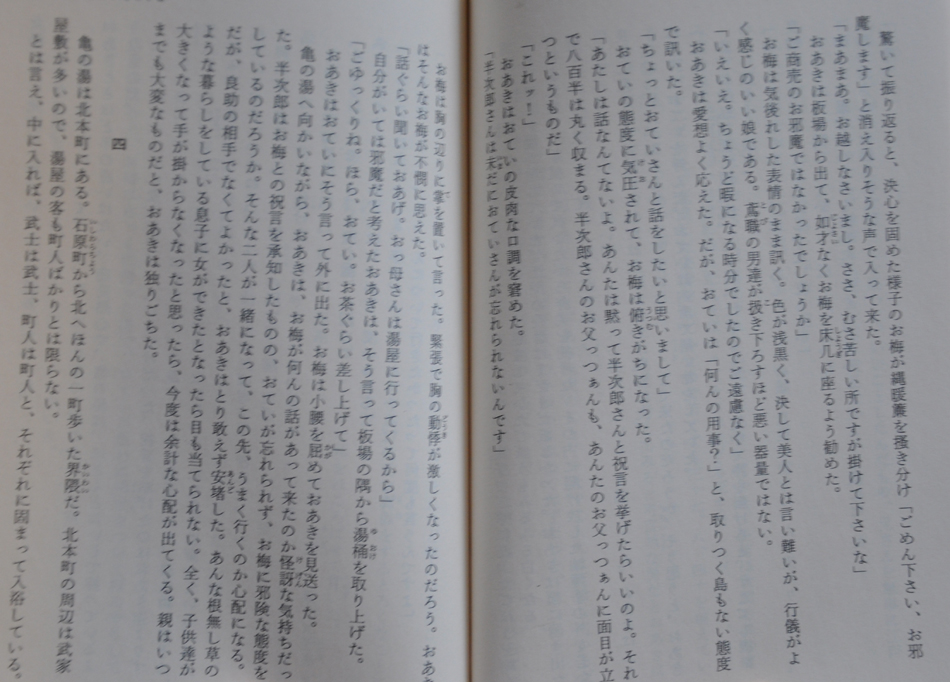 驚いて振り返ると、決心を固めた様子のお梅が縄暖簾を掻き分け「ごめん下さい、お邪
魔します」と消え入りそうな声で入って来た。
「まあまあ。お越しなさいまし。ささ、むさ苦しい所ですが掛けて下さいな」
おあきは板場から出て、如才なくお梅を床几に座るよう勧めた。
「ご商売のお邪魔ではなかったでしょうか」
お梅は気後れした表情のまま訊く。色が浅黒く、決して美人とは言い難いが、行儀がよ
く感じのいい娘である。鳶職の男達が扱き下ろすほど悪い器量ではない。
「いえいえ。ちょうど暇になる時分でしたのでご遠慮なく」
おあきは愛想よく応えた。だが、おていは「何んの用事?」と、取りつく島もない態度
で訊いた。
「ちょっとおていさんと話をしたいと思いまして」
おていの態度に気圧されて、お梅は俯きがちになった。
「あたしは話なんてないよ。あんたは黙って半次郎さんと祝言を挙げたらいいのよ。それ
で八百半は丸く収まる。半次郎さんのお父っつぁんも、あんたのお父っつぁんに面目が立
つというものだ」
「これッ!」
おあきはおていの皮肉な口調を窘めた。
「半次郎さんは未だにおていさんが忘れられないんです」
お梅は胸の辺りに拳を置いて言った。緊張で胸の動悸が激しくなったのだろう。おあ
はそんなお梅が不憫に思えた。
「話ぐらい聞いておあげ。おっ母さんは湯屋に行ってくるから」
自分がいては邪魔だと考えたおあきは、そう言って板場の隅から湯桶を取り上げた。
「ごゆっくりね。ほら、おてい。お茶ぐらい差し上げて」
おあきはおていにそう言って外に出た。お梅は小腰を屈めておあきを見送った。
亀の湯へ向かいながら、おあきは、お梅が何んの話があって来たのか怪訝な気持ちだっ
た。半次郎はお梅との祝言を承知したものの、おていが忘れられず、お梅に邪険な態度を
しているのだろうか。そんな二人が一緒になって、この先、うまく行くのか心配になる。
だが、良助の相手でなくてよかったと、おあきはとり敢えず安堵した。あんな根無し草の
ような暮らしをしている息子に女ができたとなったら目も当てられない。全く、子供達が
大きくなって手が掛からなくなったと思ったら、今度は余計な心配が出てくる。親はいつ
までも大変なものだと、おあきは独りごちた。
四
亀の湯は北本町にある。石原町から北へほんの一町歩いた界隈だ。北本町の周辺は武家
屋敷が多いので、湯屋の客も町人ばかりとは限らない。
とは言え、中に入れば、武士は武士、町人は町人と、それぞれに固まって入浴している。